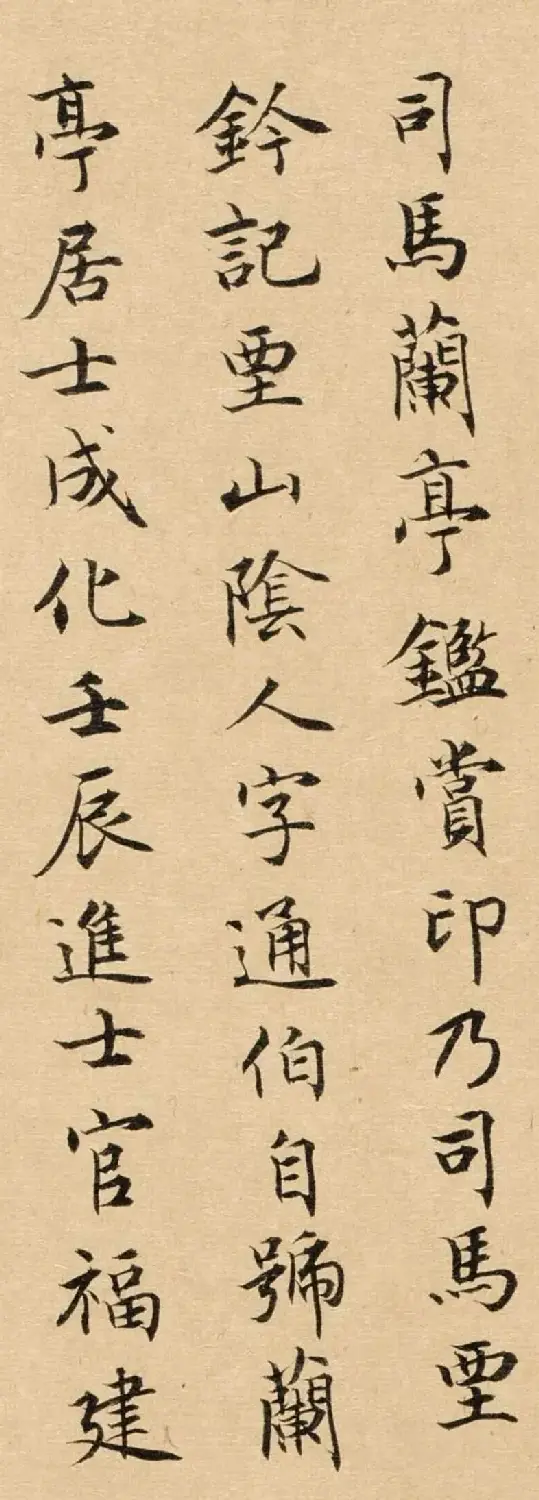 司馬蘭亭鑑賞印乃司馬垔
鈐記垔山陰人字通伯自號蘭
亭居士成化壬辰進士官福建